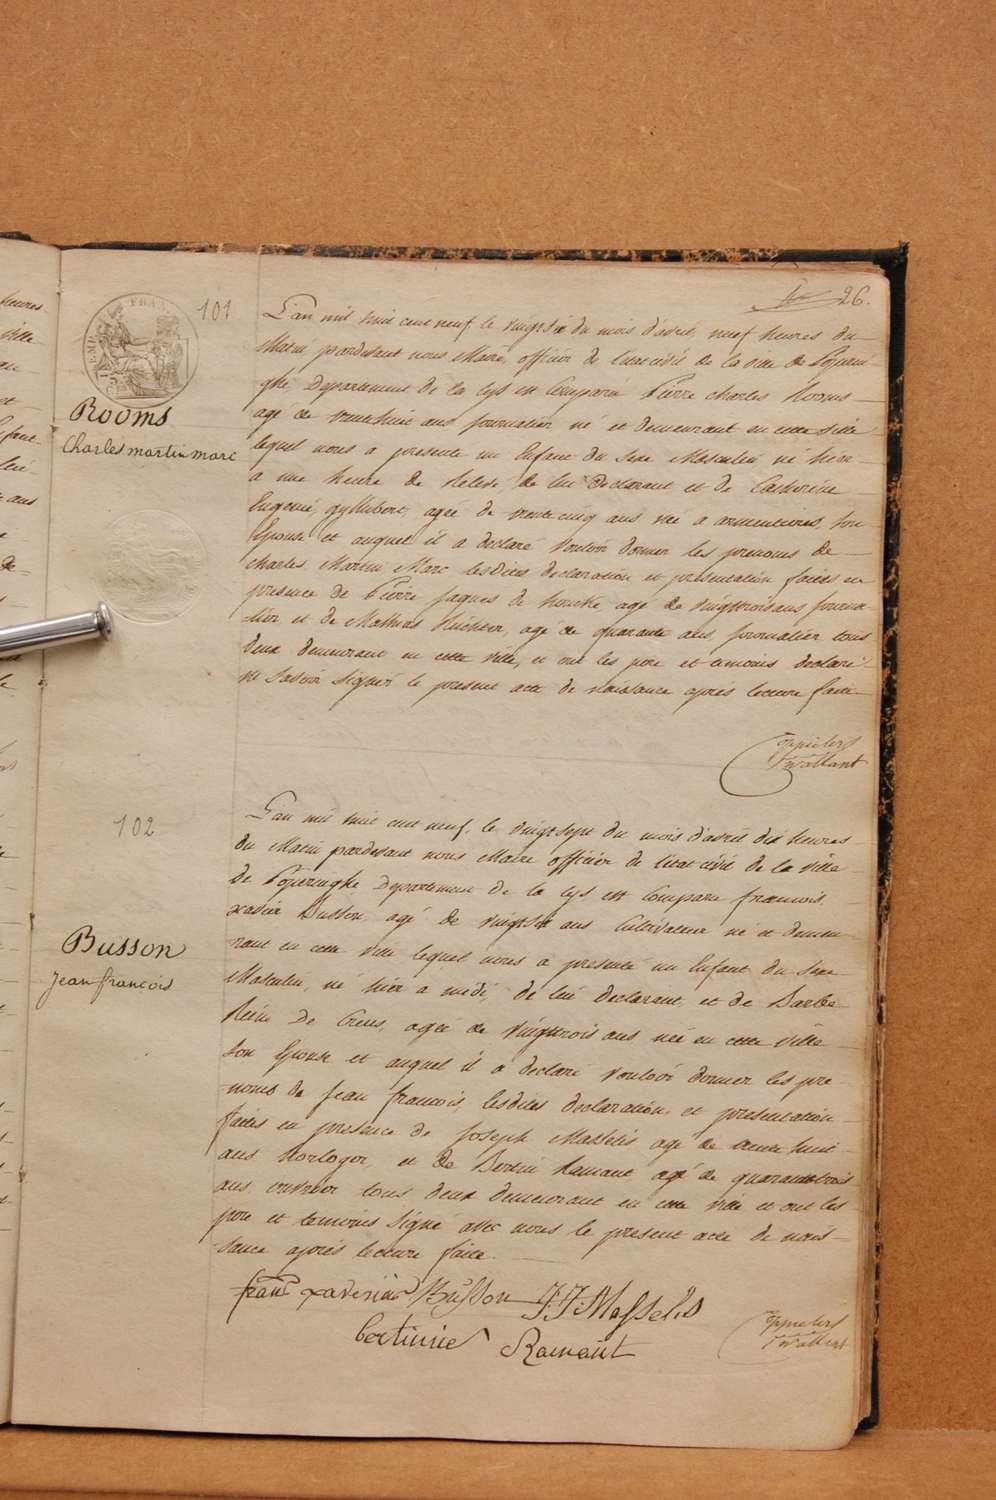 26.
101
Rooms
Charles martin marc
L'an mil huit cent neuf le vingtsix du mois d'avril, neuf heures du
Matin pardevant nous Maire, officier de l'etat civil de la ville de Poperin
ghe, Departement de la Lys est Comparu Pierre Charles Rooms
agé de trente huit ans journalier né et demeurant en cette ville
lequel nous a presenté un Enfant du Sexe Masculin né hier
a une heure de de lui Declarant et de Catherine
Eugenie agée de trente cinq ans née a armentieres, son
Epouse et auquel il a declaré Vouloir donner les prenoms de
Charles Martin Marc lesdites declaration et presentation faites en
presence de Pierre Jaques de agé de vingttrois ans journa
lier et de Mathias agé de quarante ans, journalier tous
deux demeurant en cette ville, et ont les pere et temoins declaré
ne savoir signer le present acte de naissance après lecture faite
102
Busson
Jean francois
L'an mil huit cent neuf, le vingtsept du mois d'avril dix heures
du Matin pardevant nous Maire officier de l'etat civil de la ville
de Poperinghe, Departement de la Lys est Comparu francois
xavier Busson agé de vingtsix ans Cultivateur né et demeu
rant en cette ville lequel nous a presenté un Enfant du Sexe
Masculin, né hier a midi, de lui Declarant, et de Barbe
Reine De agée de vingttrois ans née en cette ville
son Epouse et auquel il a declaré Vouloir donner les pre
noms de Jean francois, lesdites declaration et presentation
faites en presence de Joseph Masselis agé de trente huit
ans horloger, et de Bertin Ramaut agé de quarantetrois
ans ouvrier tous deux demeurant en cette ville et ont les
pere et temoins signé avec nous le present acte de nais
sance après lecture faite.
xaverius Busson J J: Masselis
Ramaut